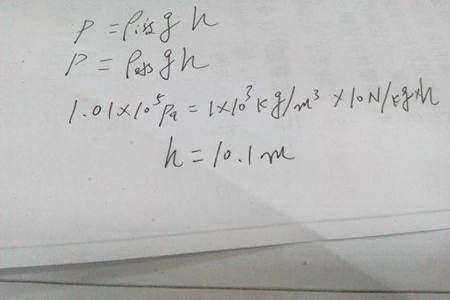 P = ρ液gh
P = ρ水gh
1.01×10⁵Pa = 1×10³kg/m³ ×10N/kg×h
h = 10.1m